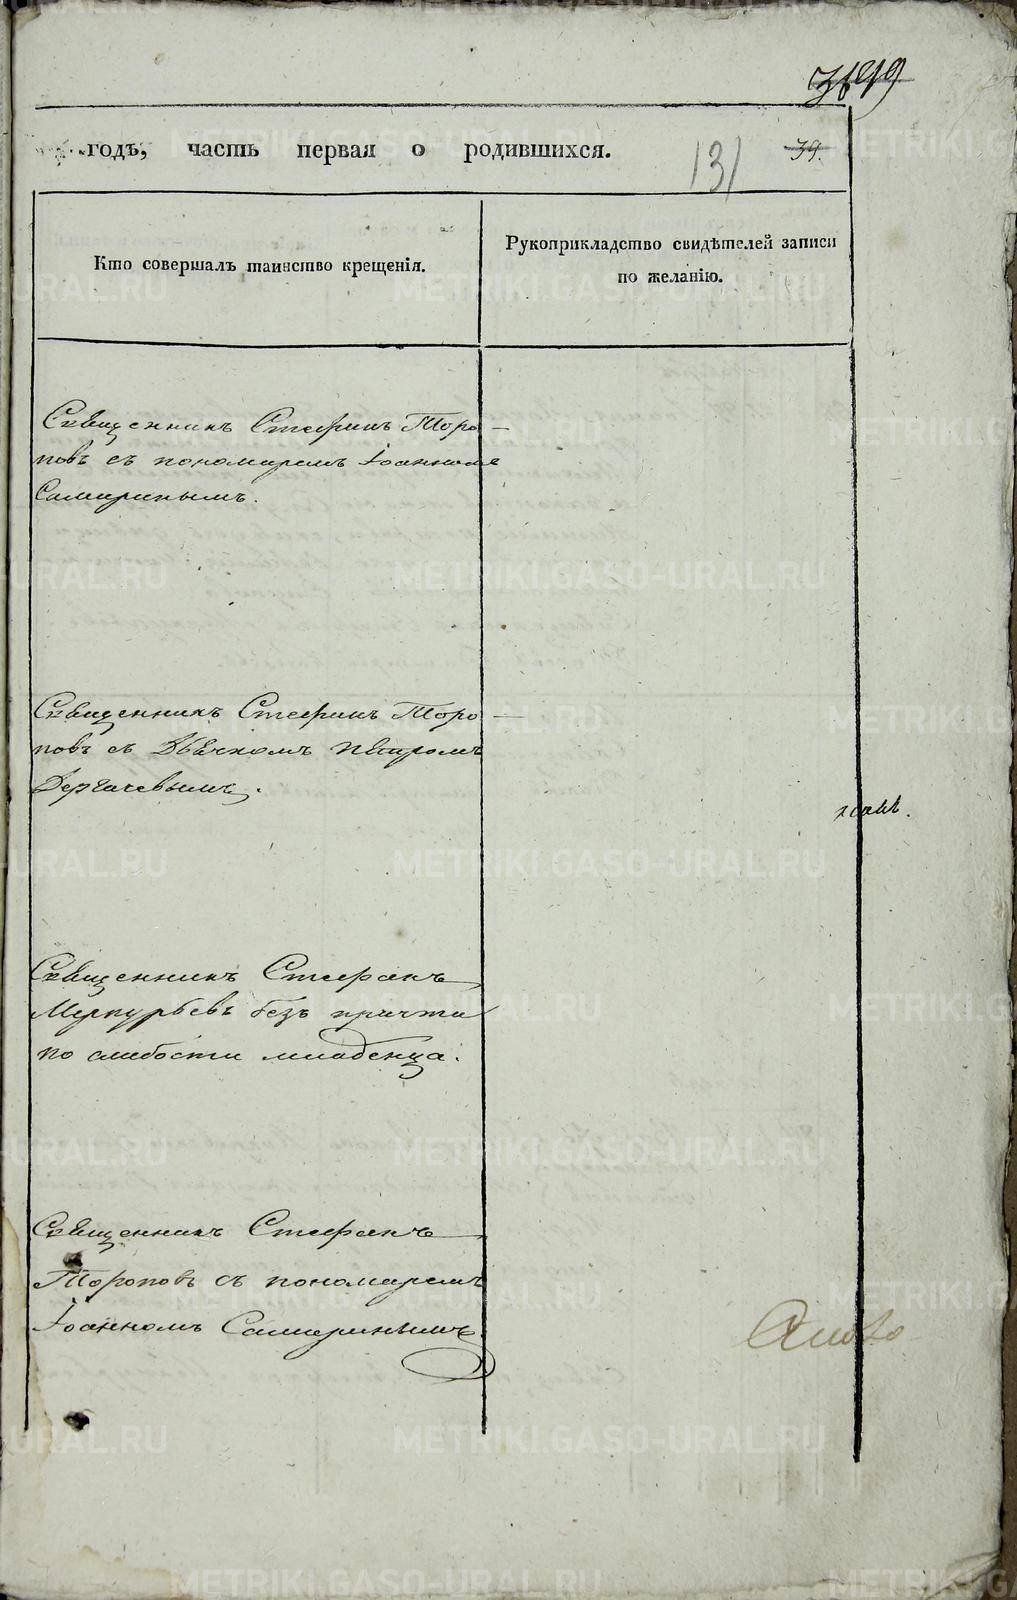 годъ, часть первая о родившихся.
131
39.
Кто совершалъ таинство крещенія.
Рукоприкладство свидѣтелей записи
по желанію.
Священникъ Стефанъ Торо-
повъ съ пономаремъ Іоанномъ
Самаринымъ.
Священникъ Стефанъ Торо-
повъ съ Дьячкомъ Петромъ
Дергачевымъ.
Священникъ Стефанъ
Меркурьевъ безъ причта
по слабости младенца.
Священникъ Стефанъ
Тороповъ съ пономаремъ
Іоанномъ Самаринымъ
METRIKI.GASO-URAL.RU